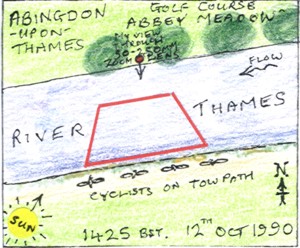 ABINGDON
-UPON-
THAMES
GOLF COURSE
ABBEY MEADOW
MY VIEW
THROUGH
ZOOM LENS
FLOW
RIVER THAMES
CYCLISTS ON TOWPATH
N
SUN
1425 BST. 12TH OCT 1990